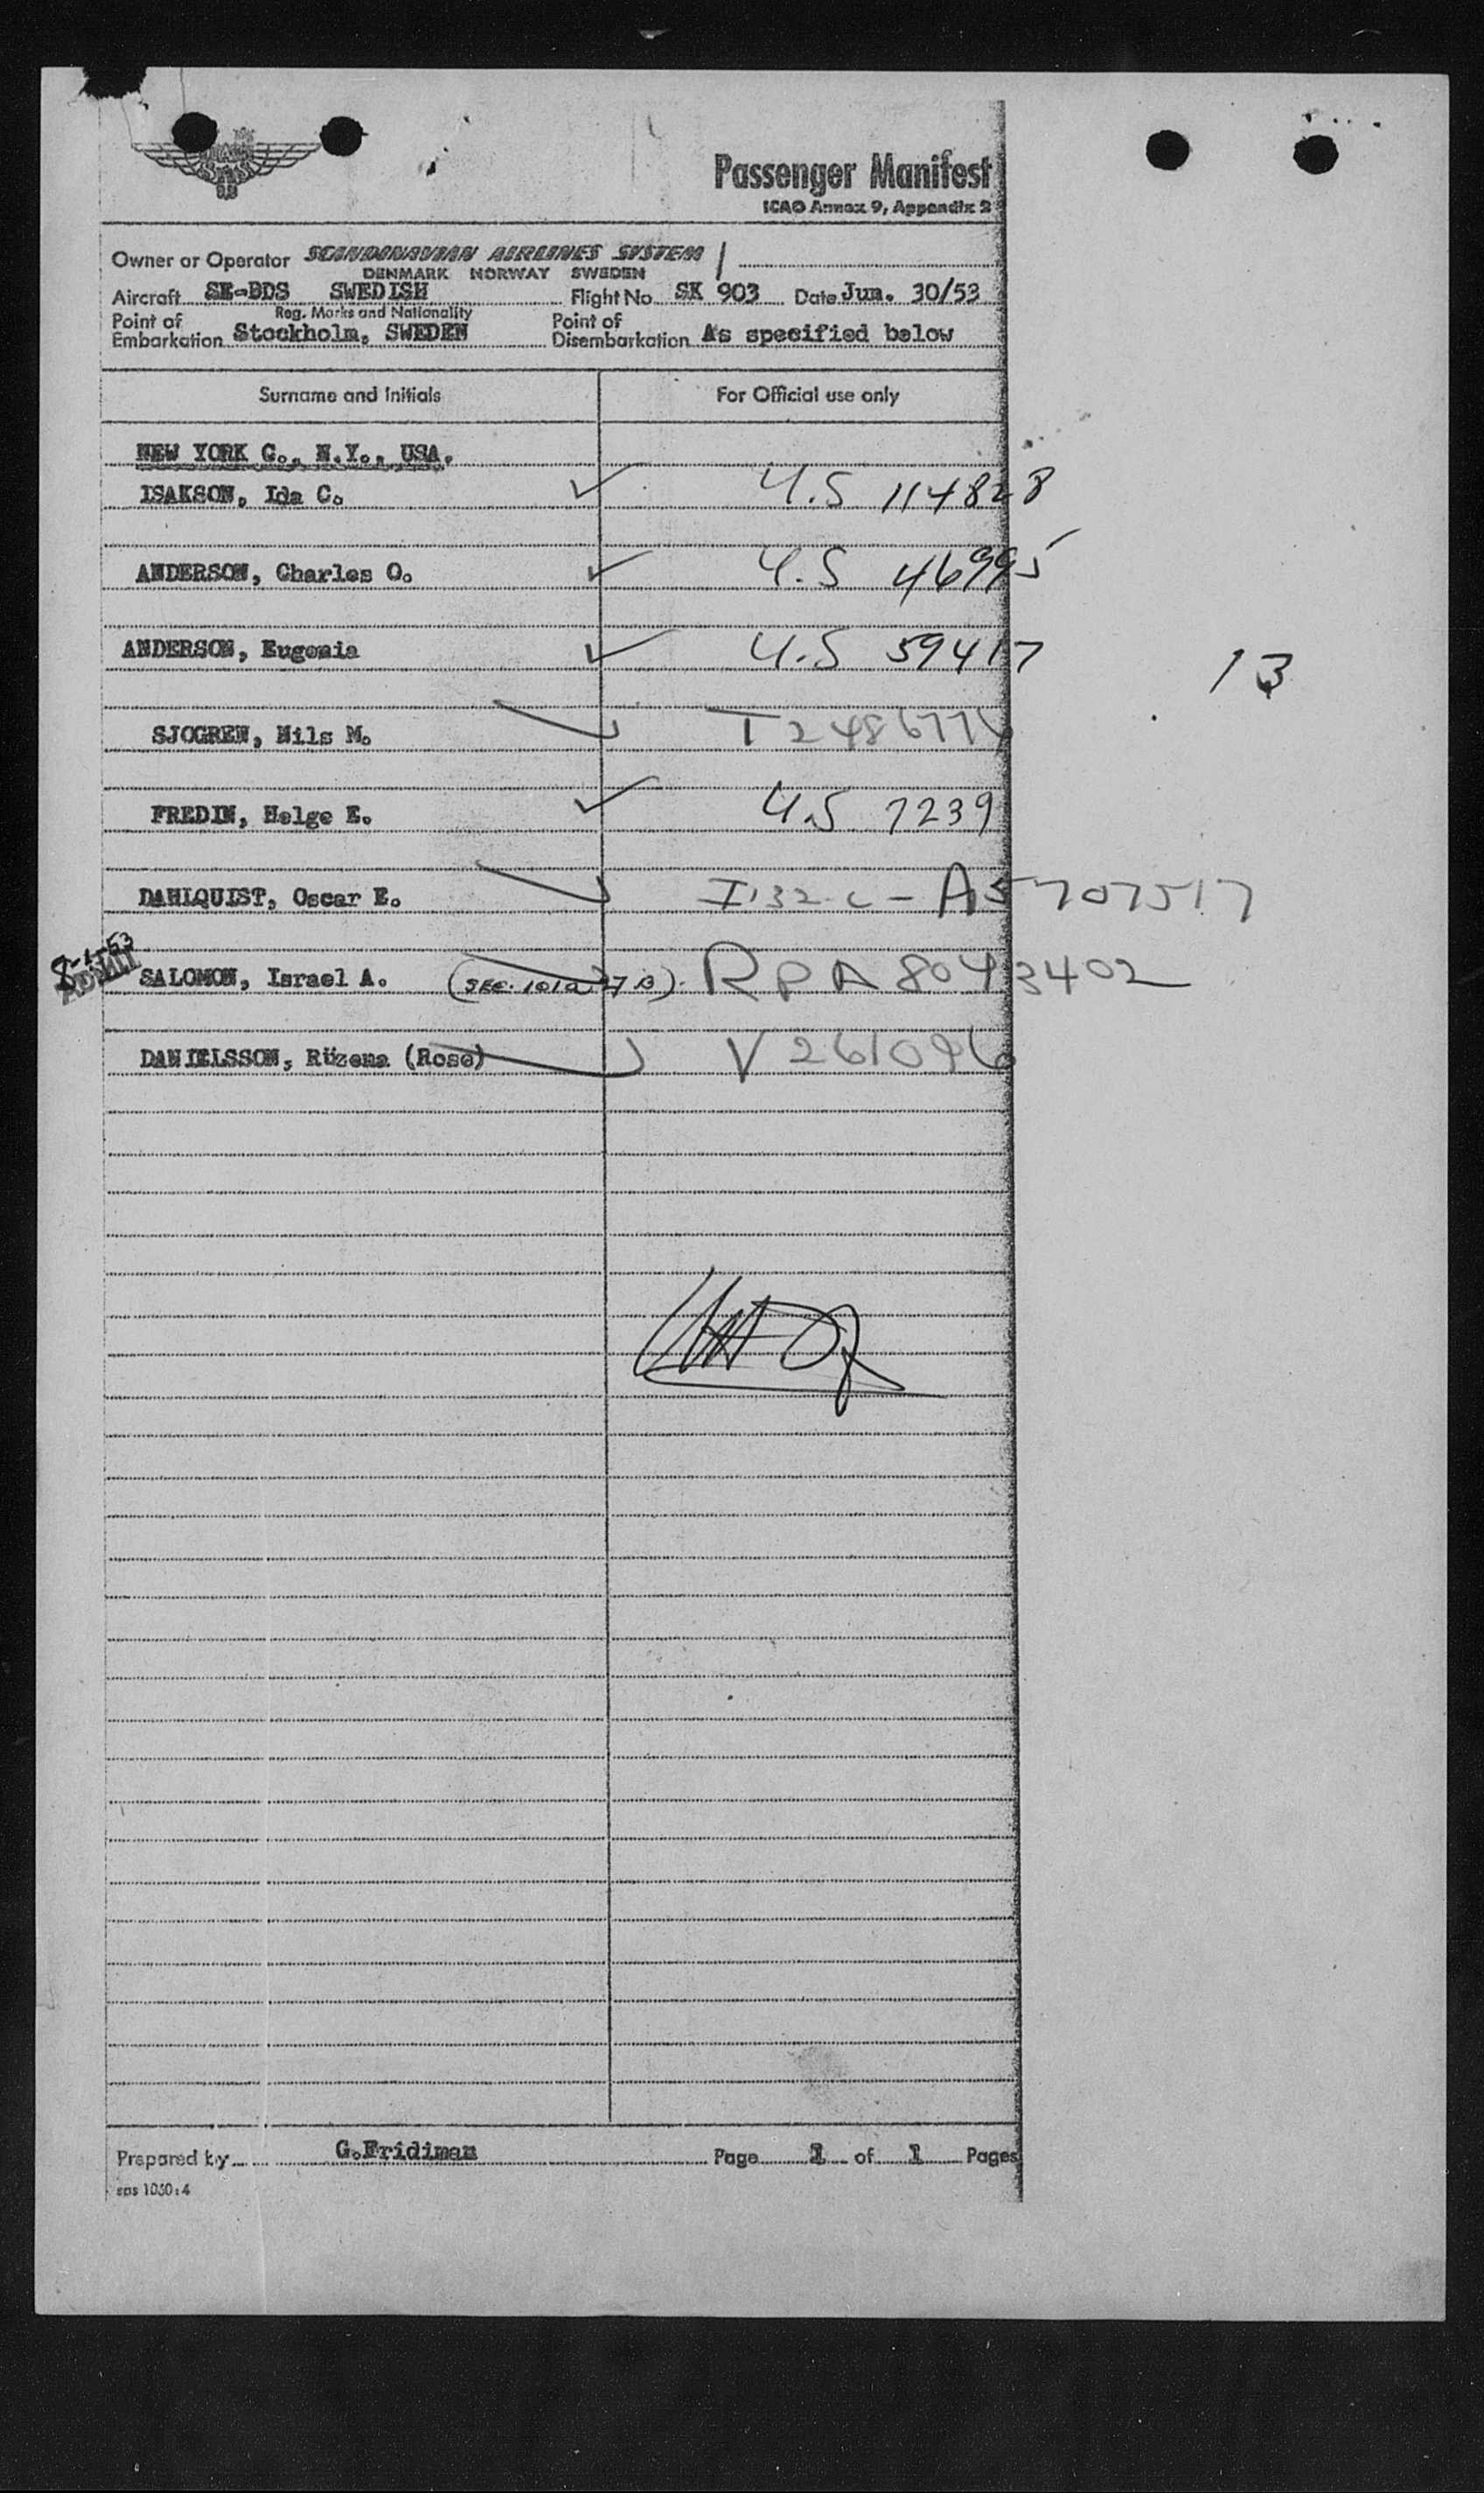 SAS
Passenger Manifest
ICAO Annex 9, Appendix 2
Owner or Operator SCANDINAVIAN AIRLINES SYSTEM
DENMARK NORWAY SWEDEN
Aircraft SE-BDS SWEDISH Flight No SK 903 Date Jun. 30/53
Reg. Marks and Nationality
Point of Embarkation Stockholm, SWEDEN Point of Disembarkation As specified below
Surname and Initials For Official use only
NEW YORK C., N.Y., USA.
ISAKSON, Ida C. U.S 114828
ANDERSON, Charles O. U.S 46995
ANDERSON, Eugenia U.S 59417
13
SJOGREN, Nils M.
FREDIN, Helge E. U.S 7239
DAHLQUIST, Oscar E. I-132-C - A5707517
8-1-53
ADMIT
SALOMON, Israel A. RPA 8043402
DANIELSSON, Rüzena (Rose) V 261096
Prepared by G.Fridiman Page 1 of 1 Pages
sas 1030:4